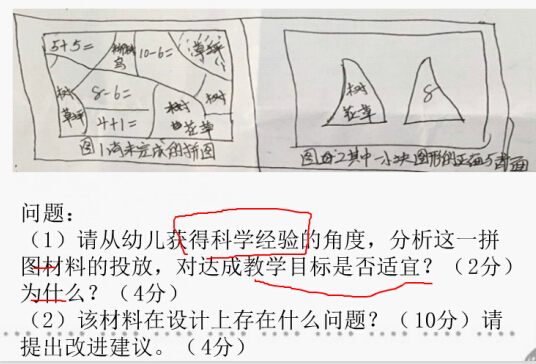 5+5=
10-6=
树
草
8-6=
4+1=
树
花草
树
图1尚未完成的拼图
树
花草
8
图2其中一小块图形的正面与背面
问题：
（1）请从幼儿获得科学经验的角度，分析这一拼
图材料的投放，对达成教学目标是否适宜？（2分）
为什么？（4分）
（2）该材料在设计上存在什么问题？（10分）请
提出改进建议。（4分）